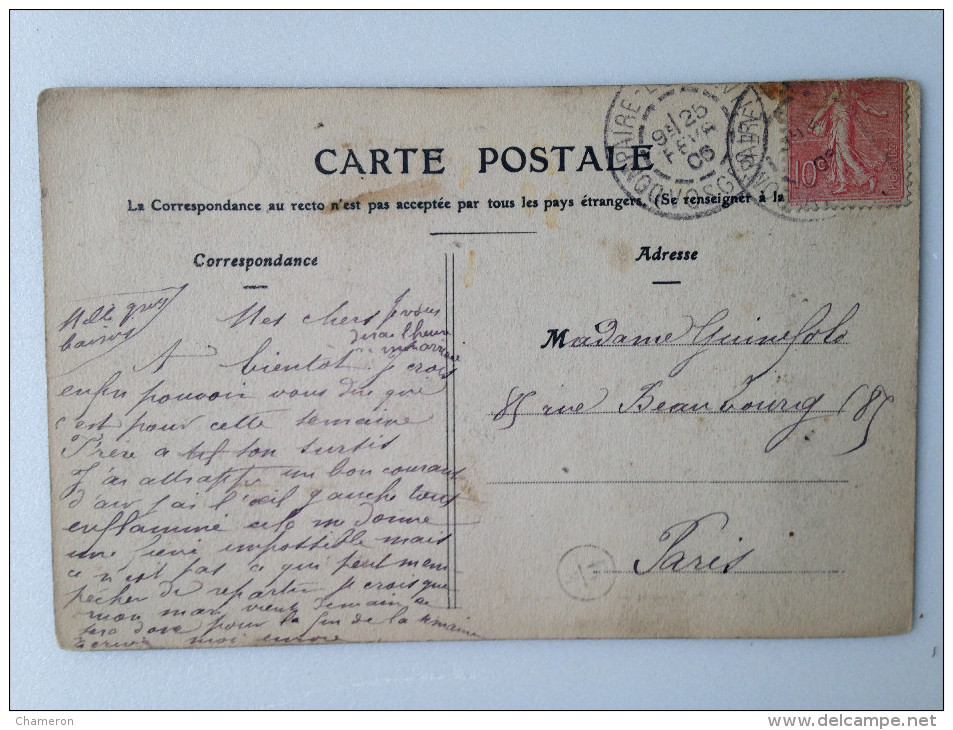 CARTE POSTALE
La Correspondance au recto n'est pas acceptée par tous les pays étrangers. (Se renseigner à la
Correspondance
Adresse
Mes chers
Je vous
dirai l'heure
A bientôt. je crois
enfin pouvoir vous dire que
c'est pour cette semaine
Frère a son sursis
J'ai attrappé un bon courant
d'air j'ai l'œil gauche tous
enflammé cela me donne
une fievre impossible mais
ce n'est pas ce qui peut mem
pêcher de repartir je crois que
mon mari vient demain ce
sera donc pour la fin de la semaine
moi encore
Madame
85 rue Beaubourg (85)
Paris
25
FEVR
06
VOSGES
10
Chameron
delcampe.net